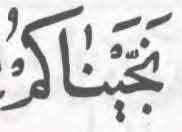 نَجَّيْنَٰكُمْ